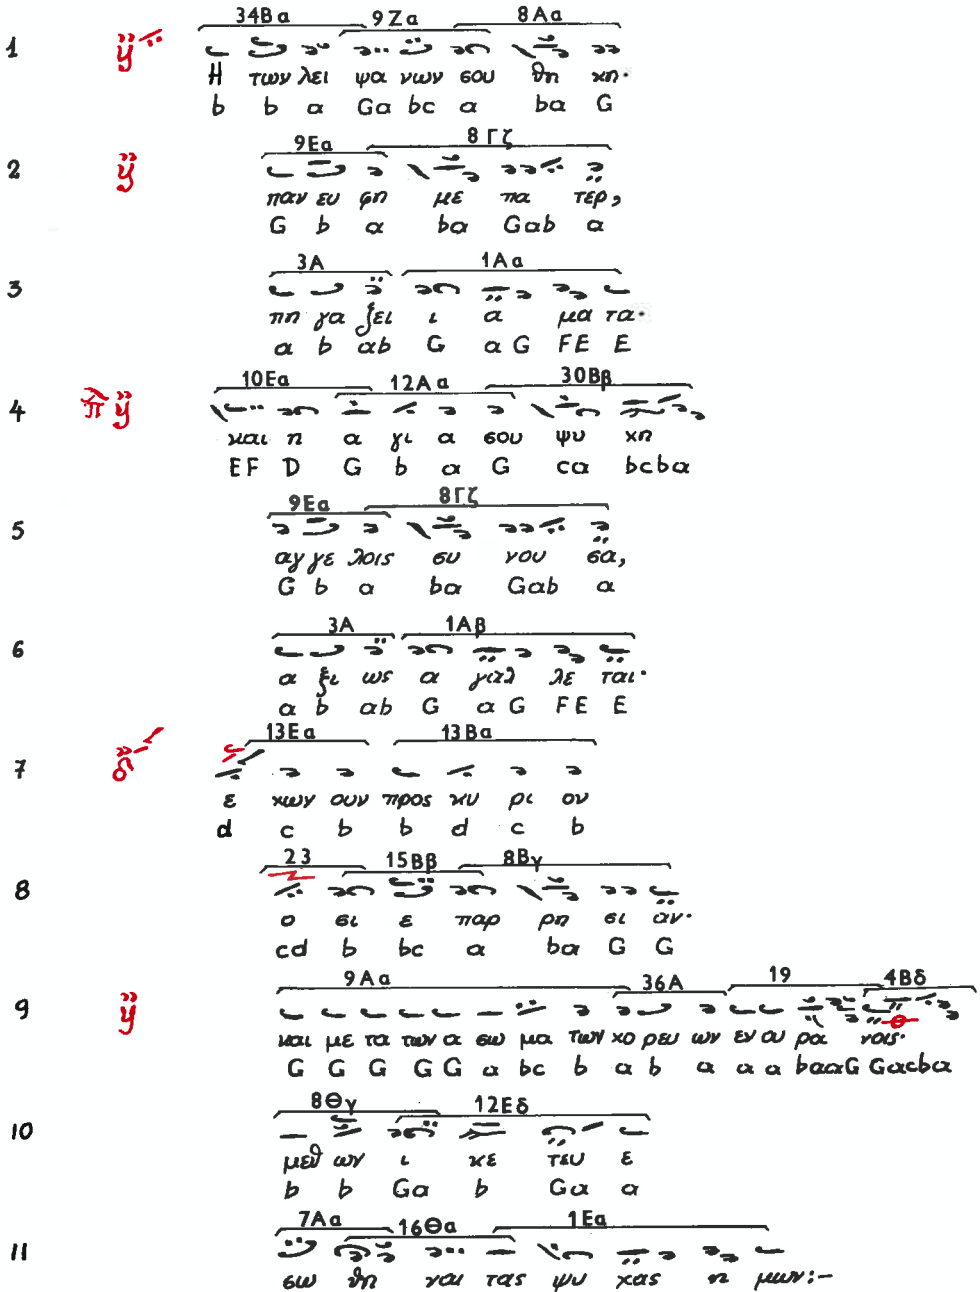 34Βα 9Ζα 8Αα
1
Η των λει ψα νων σου θη κη·
b b a Ga bc a ba G
9Εα 8Γζ
2
παν ευ φη με πα τερ,
G b a ba Gab a
3Α 1Αα
3
πη γα ζει ι α μα τα·
a b ab G a G FE E
10Εα 12Αα 30Ββ
4
και η α γι α σου ψυ χη
EF D G b a G ca bcba
9Εα 8Γζ
5
αγ γε λοις συ νου σα,
G b a ba Gab a
3Α 1Αβ
6
α ξι ως α γαλ λε ται·
a b ab G a G FE E
13Εα 13Βα
7
ε χων ουν προς κυ ρι ον
d c b b d c b
23 15Ββ 8Βγ
8
ο σι ε παρ ρη σι αν·
cd b bc a ba G G
9Αα 36Α 19 4Βδ
9
και με τα των α σω μα των χο ρευ ων εν ου ρα νοις·
G G G G G a bc b a b a a a baaG Gacba
8Θγ 12Εδ
10
μεθ ων ι κε τευ ε
b b Ga b Ga a
7Αα 16Θα 1Εα
11
σω θη ναι τας ψυ χας η μων:–